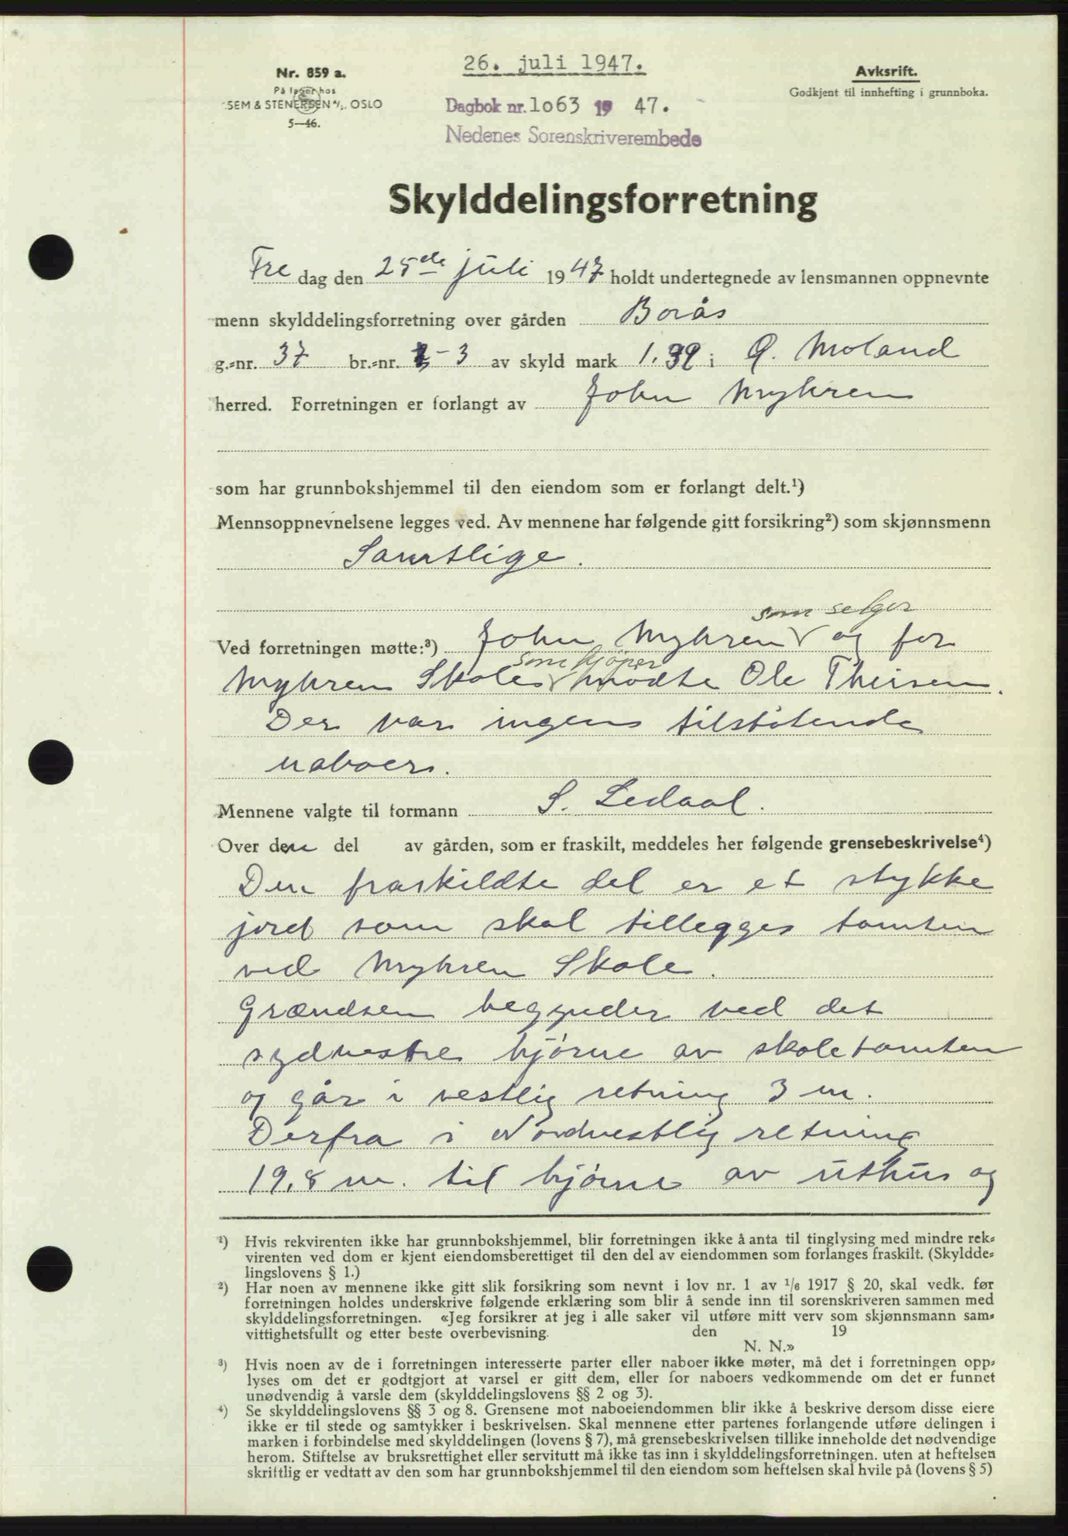 26. juli 1947.
Nr. 859 a.
På lager hos
SEM & STENERSEN A/S, OSLO
5—46.
Avksrift.
Godkjent til innhefting i grunnboka.
Dagbok nr. 1o63 19 47.
Nedenes Sorenskriverembede
Skylddelingsforretning
Fre dag den 25de juli 1947 holdt undertegnede av lensmannen oppnevnte
menn skylddelingsforretning over gården Borås
g.-nr. 37 br.-nr. 3 av skyld mark 1.39 i Ø. Moland
herred. Forretningen er forlangt av John Myhren
som har grunnbokshjemmel til den eiendom som er forlangt delt.¹)
Mennsoppnevnelsene legges ved. Av mennene har følgende gitt forsikring²) som skjønnsmenn
Samtlige.
som selger
Ved forretningen møtte:³) John Myhren √ og for
som kjøper
Myhren Skole √ møtte Ole Theisen.
Der var ingen tilstøtende
naboer.
Mennene valgte til formann S. Ledaal.
Over den del av gården, som er fraskilt, meddeles her følgende grensebeskrivelse⁴)
Den fraskildte del er et stykke
jord som skal tillegges tomten
ved Myhren Skole.
Grændsen begynder ved det
sydvestre hjørne av skoletomten
og går i vestlig retning 3 m.
Derfra i Nordvestlig retning
19,8 m. til hjørne av uthus og
¹) Hvis rekvirenten ikke har grunnbokshjemmel, blir forretningen ikke å anta til tinglysing med mindre rek-
virenten ved dom er kjent eiendomsberettiget til den del av eiendommen som forlanges fraskilt. (Skyldde-
lingslovens § 1.)
²) Har noen av mennene ikke gitt slik forsikring som nevnt i lov nr. 1 av 1/6 1917 § 20, skal vedk. før
forretningen holdes underskrive følgende erklæring som blir å sende inn til sorenskriveren sammen med
skylddelingsforretningen. «Jeg forsikrer at jeg i alle saker vil utføre mitt verv som skjønnsmann sam-
vittighetsfullt og etter beste overbevisning. den 19
N. N.»
³) Hvis noen av de i forretningen interesserte parter eller naboer ikke møter, må det i forretningen opp-
lyses om det er godtgjort at varsel er gitt dem, eller for naboers vedkommende om det er funnet
unødvendig å varsle dem (skylddelingslovens §§ 2 og 3).
⁴) Se skylddelingslovens §§ 3 og 8. Grensene mot naboeiendommen blir ikke å beskrive dersom disse eiere
ikke er til stede og samtykker i beskrivelsen. Skal mennene etter partenes forlangende utføre delingen i
marken i forbindelse med skylddelingen (lovens § 7), må grensebeskrivelsen tillike inneholde det nødvendige
herom. Stiftelse av bruksrettighet eller servitutt må ikke tas inn i skylddelingsforretningen. uten at heftelsen
skriftlig er vedtatt av den som har grunnbokshjemmel til den eiendom som heftelsen skal hvile på (lovens § 5)